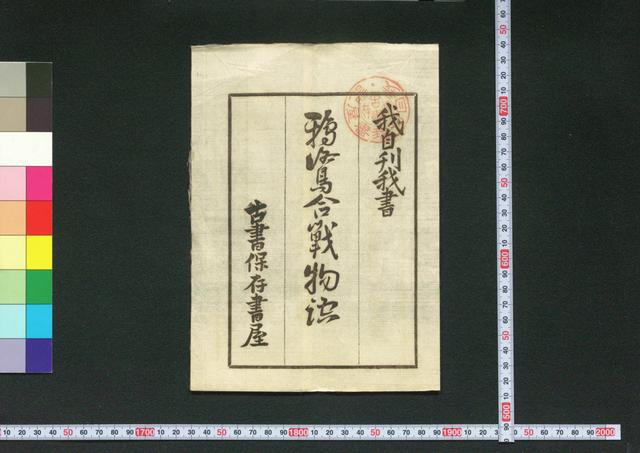 我自刊我書
鴉鷺合戰物語
古書保存書屋
60 50 40 30 20 10 700 90 80 70 60 50 40 30 20 10 600 90 80 70 60 50 40 30 20 10 500
10 20 30 40 50 60 70 80 90 1700 10 20 30 40 50 60 70 80 90 1800 10 20 30 40 50 60 70 80 90 1900 10 20 30 40 50 60 70 80 90 2000